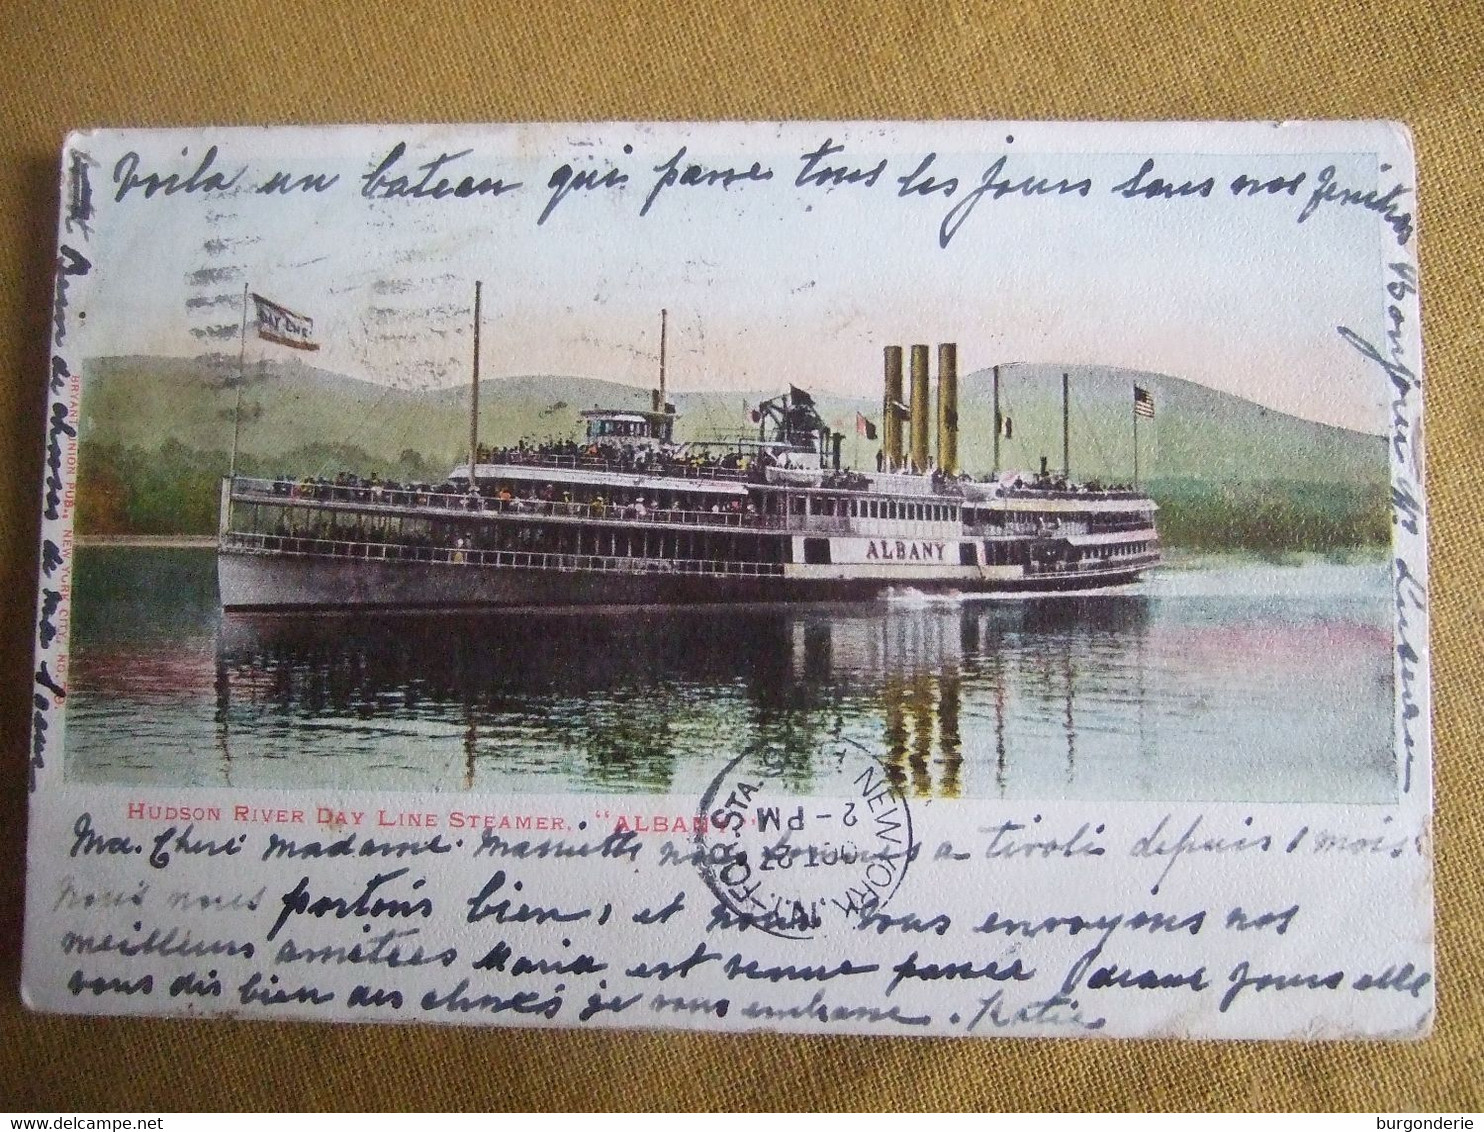 Voila un bateau qui passe tous les jours sous nos fenêtres
Bonjour Mr
DAY LINE
ALBANY
BRYANT UNION PUB., NEW YORK CITY, NO.
HUDSON RIVER DAY LINE STEAMER, "ALBANY"
NEW YORK, N.Y.
FOR. STA.
OCT 27
2-PM
Ma. Cheri madame. nous sommes a tivoli depuis 1 mois
nous nous portons bien, et nous vous envoyons nos
meilleurs amitées Maria est venue passer jours elle
vous dis bien des choses je vous embrasse. Katie
delcampe.net
burgonderie